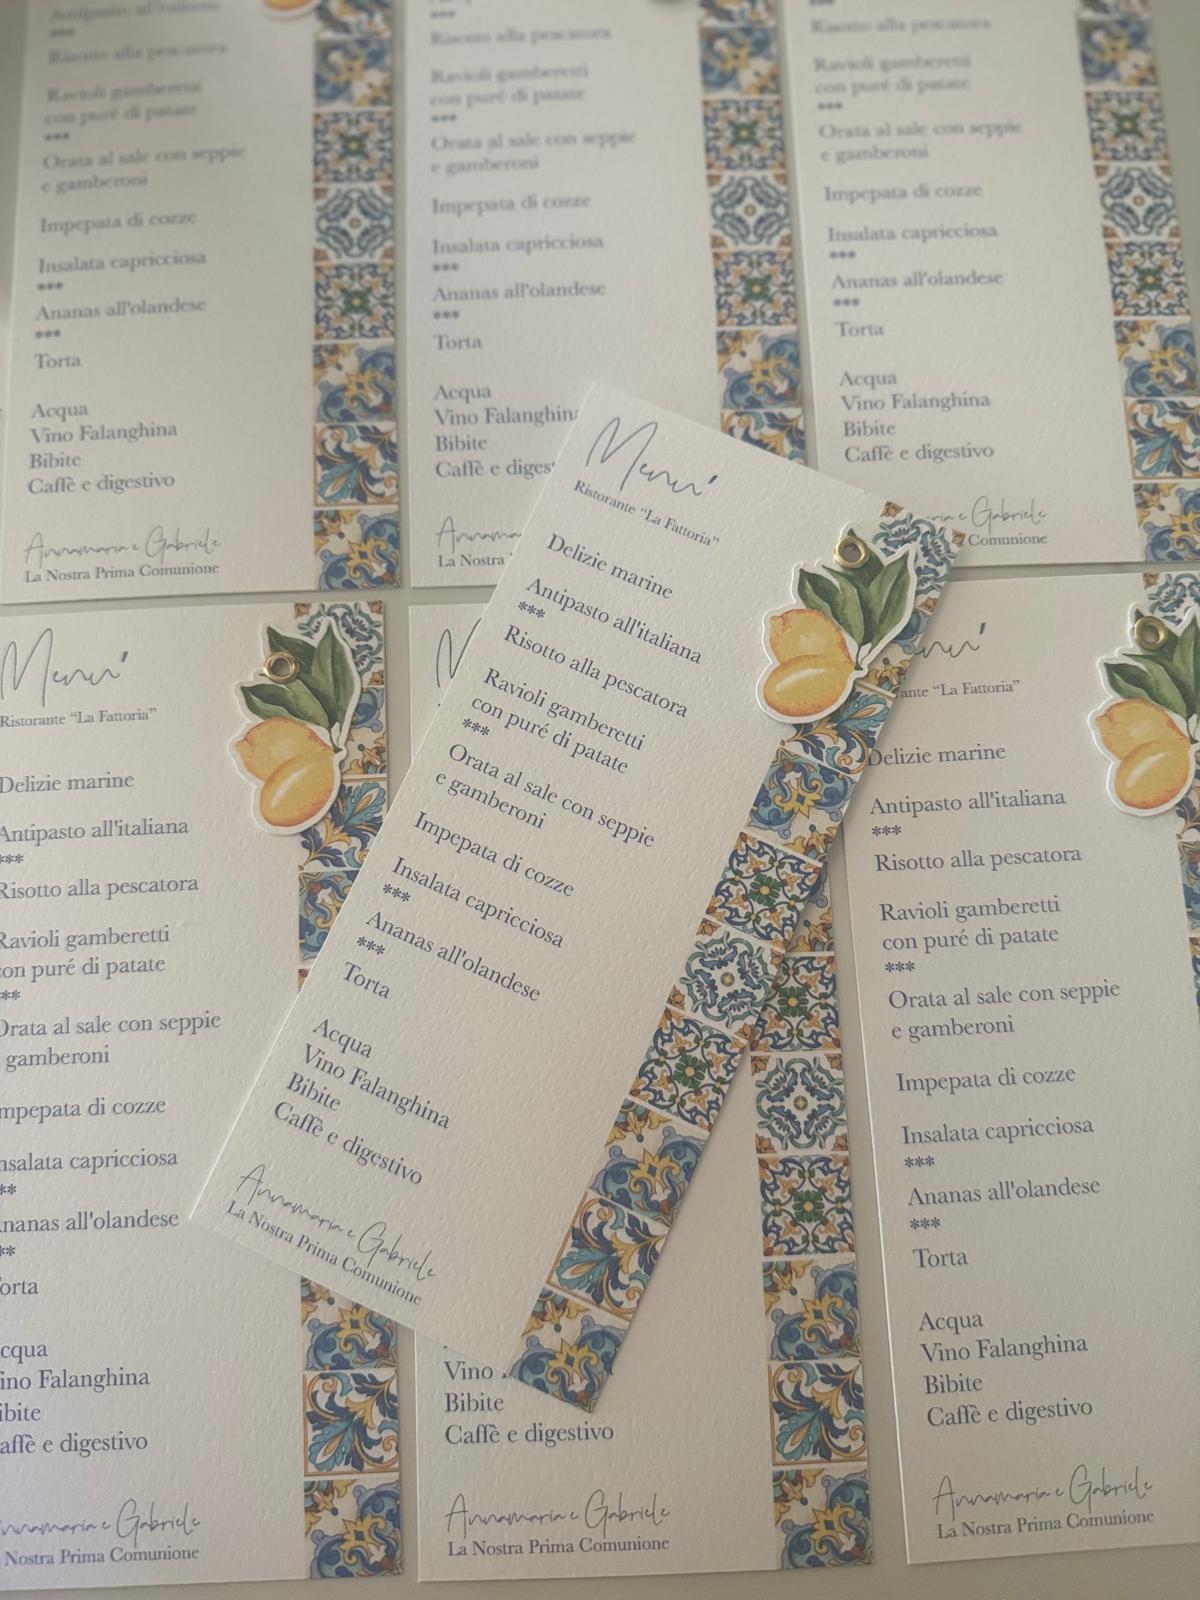 Antipasto all'italiana
***
Risotto alla pescatora
Ravioli gamberetti
con puré di patate
***
Orata al sale con seppie
e gamberoni
Impepata di cozze
Insalata capricciosa
***
Ananas all'olandese
***
Torta
Acqua
Vino Falanghina
Bibite
Caffè e digestivo
Annamaria e Gabriele
La Nostra Prima Comunione
Risotto alla pescatora
Ravioli gamberetti
con puré di patate
***
Orata al sale con seppie
e gamberoni
Impepata di cozze
Insalata capricciosa
***
Ananas all'olandese
***
Torta
Acqua
Vino Falanghina
Bibite
Caffè e diges
Annama
La Nostra P
Risotto alla pescatora
Ravioli gamberetti
con puré di patate
***
Orata al sale con seppie
e gamberoni
Impepata di cozze
Insalata capricciosa
***
Ananas all'olandese
***
Torta
Acqua
Vino Falanghina
Bibite
Caffè e digestivo
e Gabriele
Comunione
Menu'
Ristorante “La Fattoria”
Delizie marine
Antipasto all'italiana
***
Risotto alla pescatora
Ravioli gamberetti
con puré di patate
***
Orata al sale con seppie
e gamberoni
Impepata di cozze
Insalata capricciosa
***
Ananas all'olandese
***
Torta
Acqua
Vino Falanghina
Bibite
Caffè e digestivo
Annamaria e Gabriele
La Nostra Prima Comunione
Menu'
Ristorante “La Fattoria”
Delizie marine
Antipasto all'italiana
***
Risotto alla pescatora
Ravioli gamberetti
con puré di patate
**
Orata al sale con seppie
gamberoni
mpepata di cozze
nsalata capricciosa
**
nanas all'olandese
**
orta
cqua
ino Falanghina
ibite
affè e digestivo
nnamaria e Gabriele
La Nostra Prima Comunione
M
Vino
Bibite
Caffè e digestivo
Annamaria e Gabriele
La Nostra Prima Comunione
enu'
ante “La Fattoria”
Delizie marine
Antipasto all'italiana
***
Risotto alla pescatora
Ravioli gamberetti
con puré di patate
***
Orata al sale con seppie
e gamberoni
Impepata di cozze
Insalata capricciosa
***
Ananas all'olandese
***
Torta
Acqua
Vino Falanghina
Bibite
Caffè e digestivo
Annamaria e Gabriele
La Nostra Prima Comunione